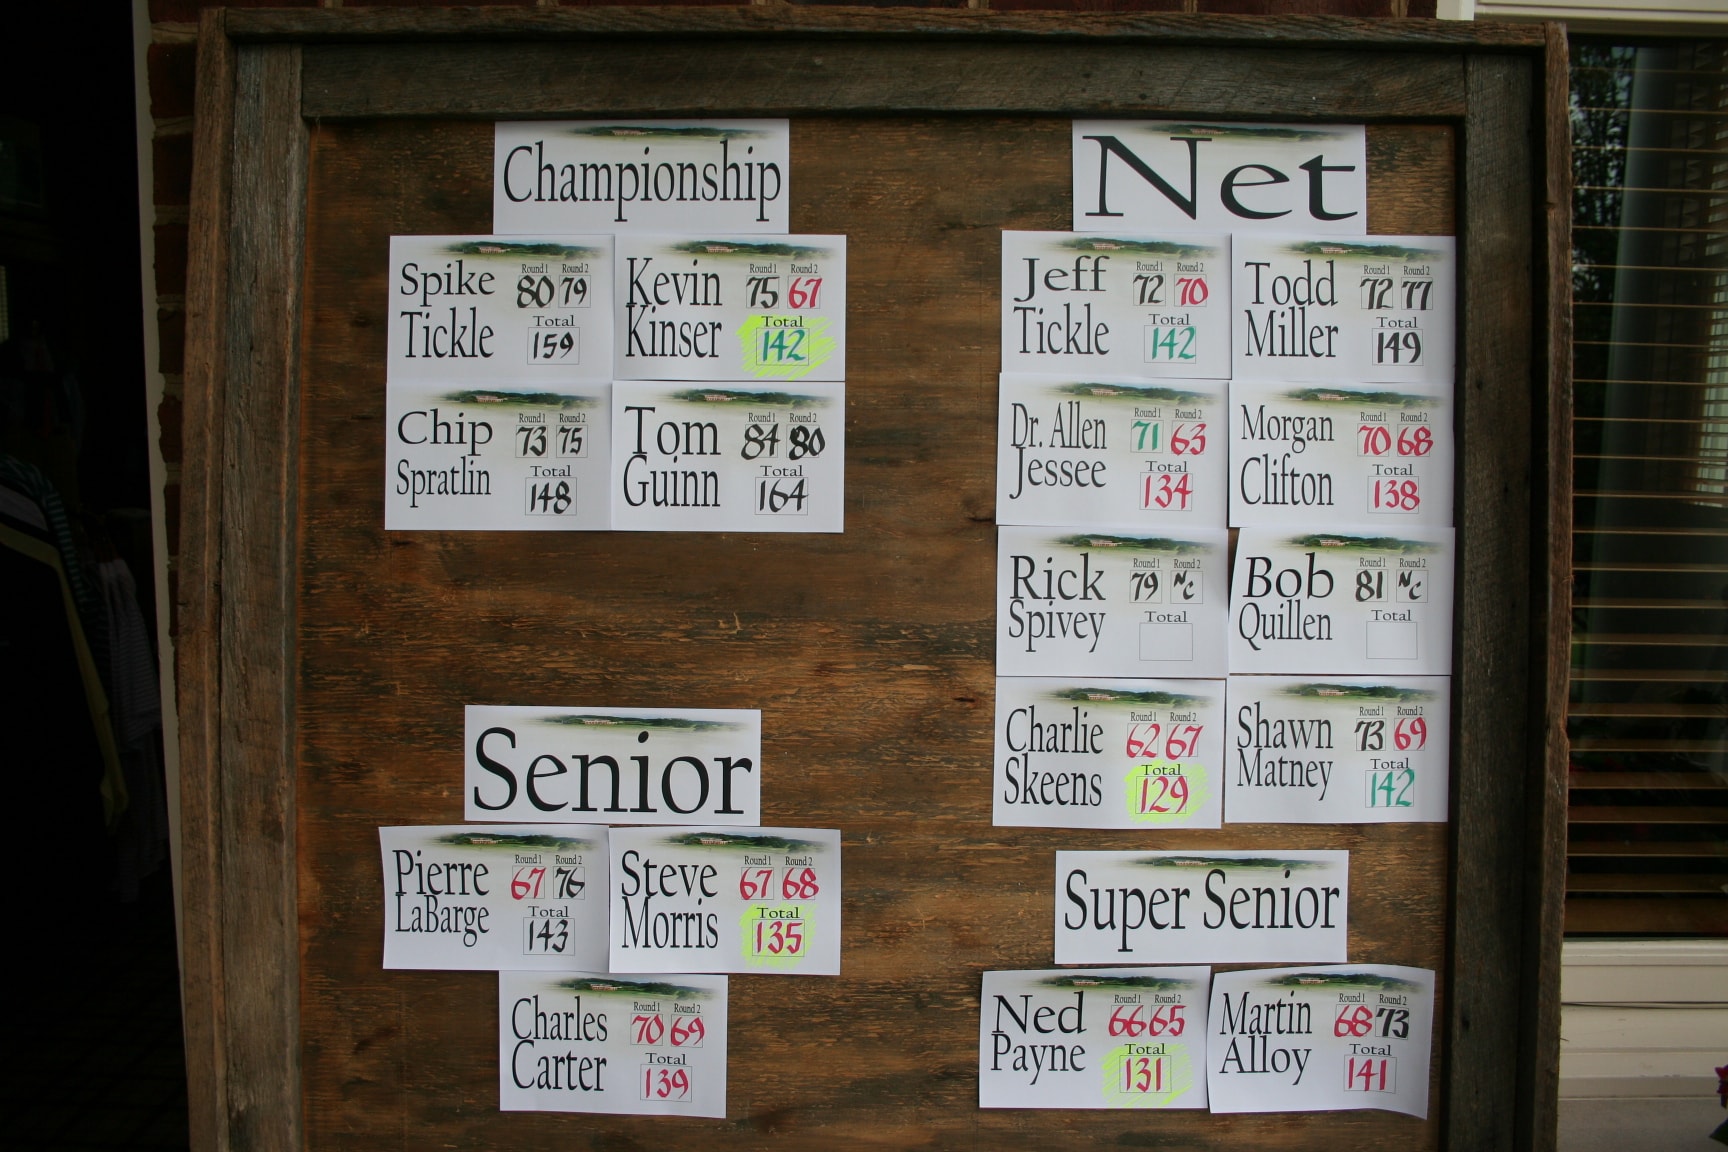 Championship
Spike
Tickle
Round 1 Round 2
80 79
Total
159
Kevin
Kinser
Round 1 Round 2
75 67
Total
142
Chip
Spratlin
Round 1 Round 2
73 75
Total
148
Tom
Guinn
Round 1 Round 2
84 80
Total
164
Net
Jeff
Tickle
Round 1 Round 2
72 70
Total
142
Todd
Miller
Round 1 Round 2
72 77
Total
149
Dr. Allen
Jessee
Round 1 Round 2
71 63
Total
134
Morgan
Clifton
Round 1 Round 2
70 68
Total
138
Rick
Spivey
Round 1 Round 2
79 Nc
Total
Bob
Quillen
Round 1 Round 2
81 Nc
Total
Charlie
Skeens
Round 1 Round 2
62 67
Total
129
Shawn
Matney
Round 1 Round 2
73 69
Total
142
Senior
Pierre
LaBarge
Round 1 Round 2
67 76
Total
143
Steve
Morris
Round 1 Round 2
67 68
Total
135
Charles
Carter
Round 1 Round 2
70 69
Total
139
Super Senior
Ned
Payne
Round 1 Round 2
66 65
Total
131
Martin
Alloy
Round 1 Round 2
68 73
Total
141